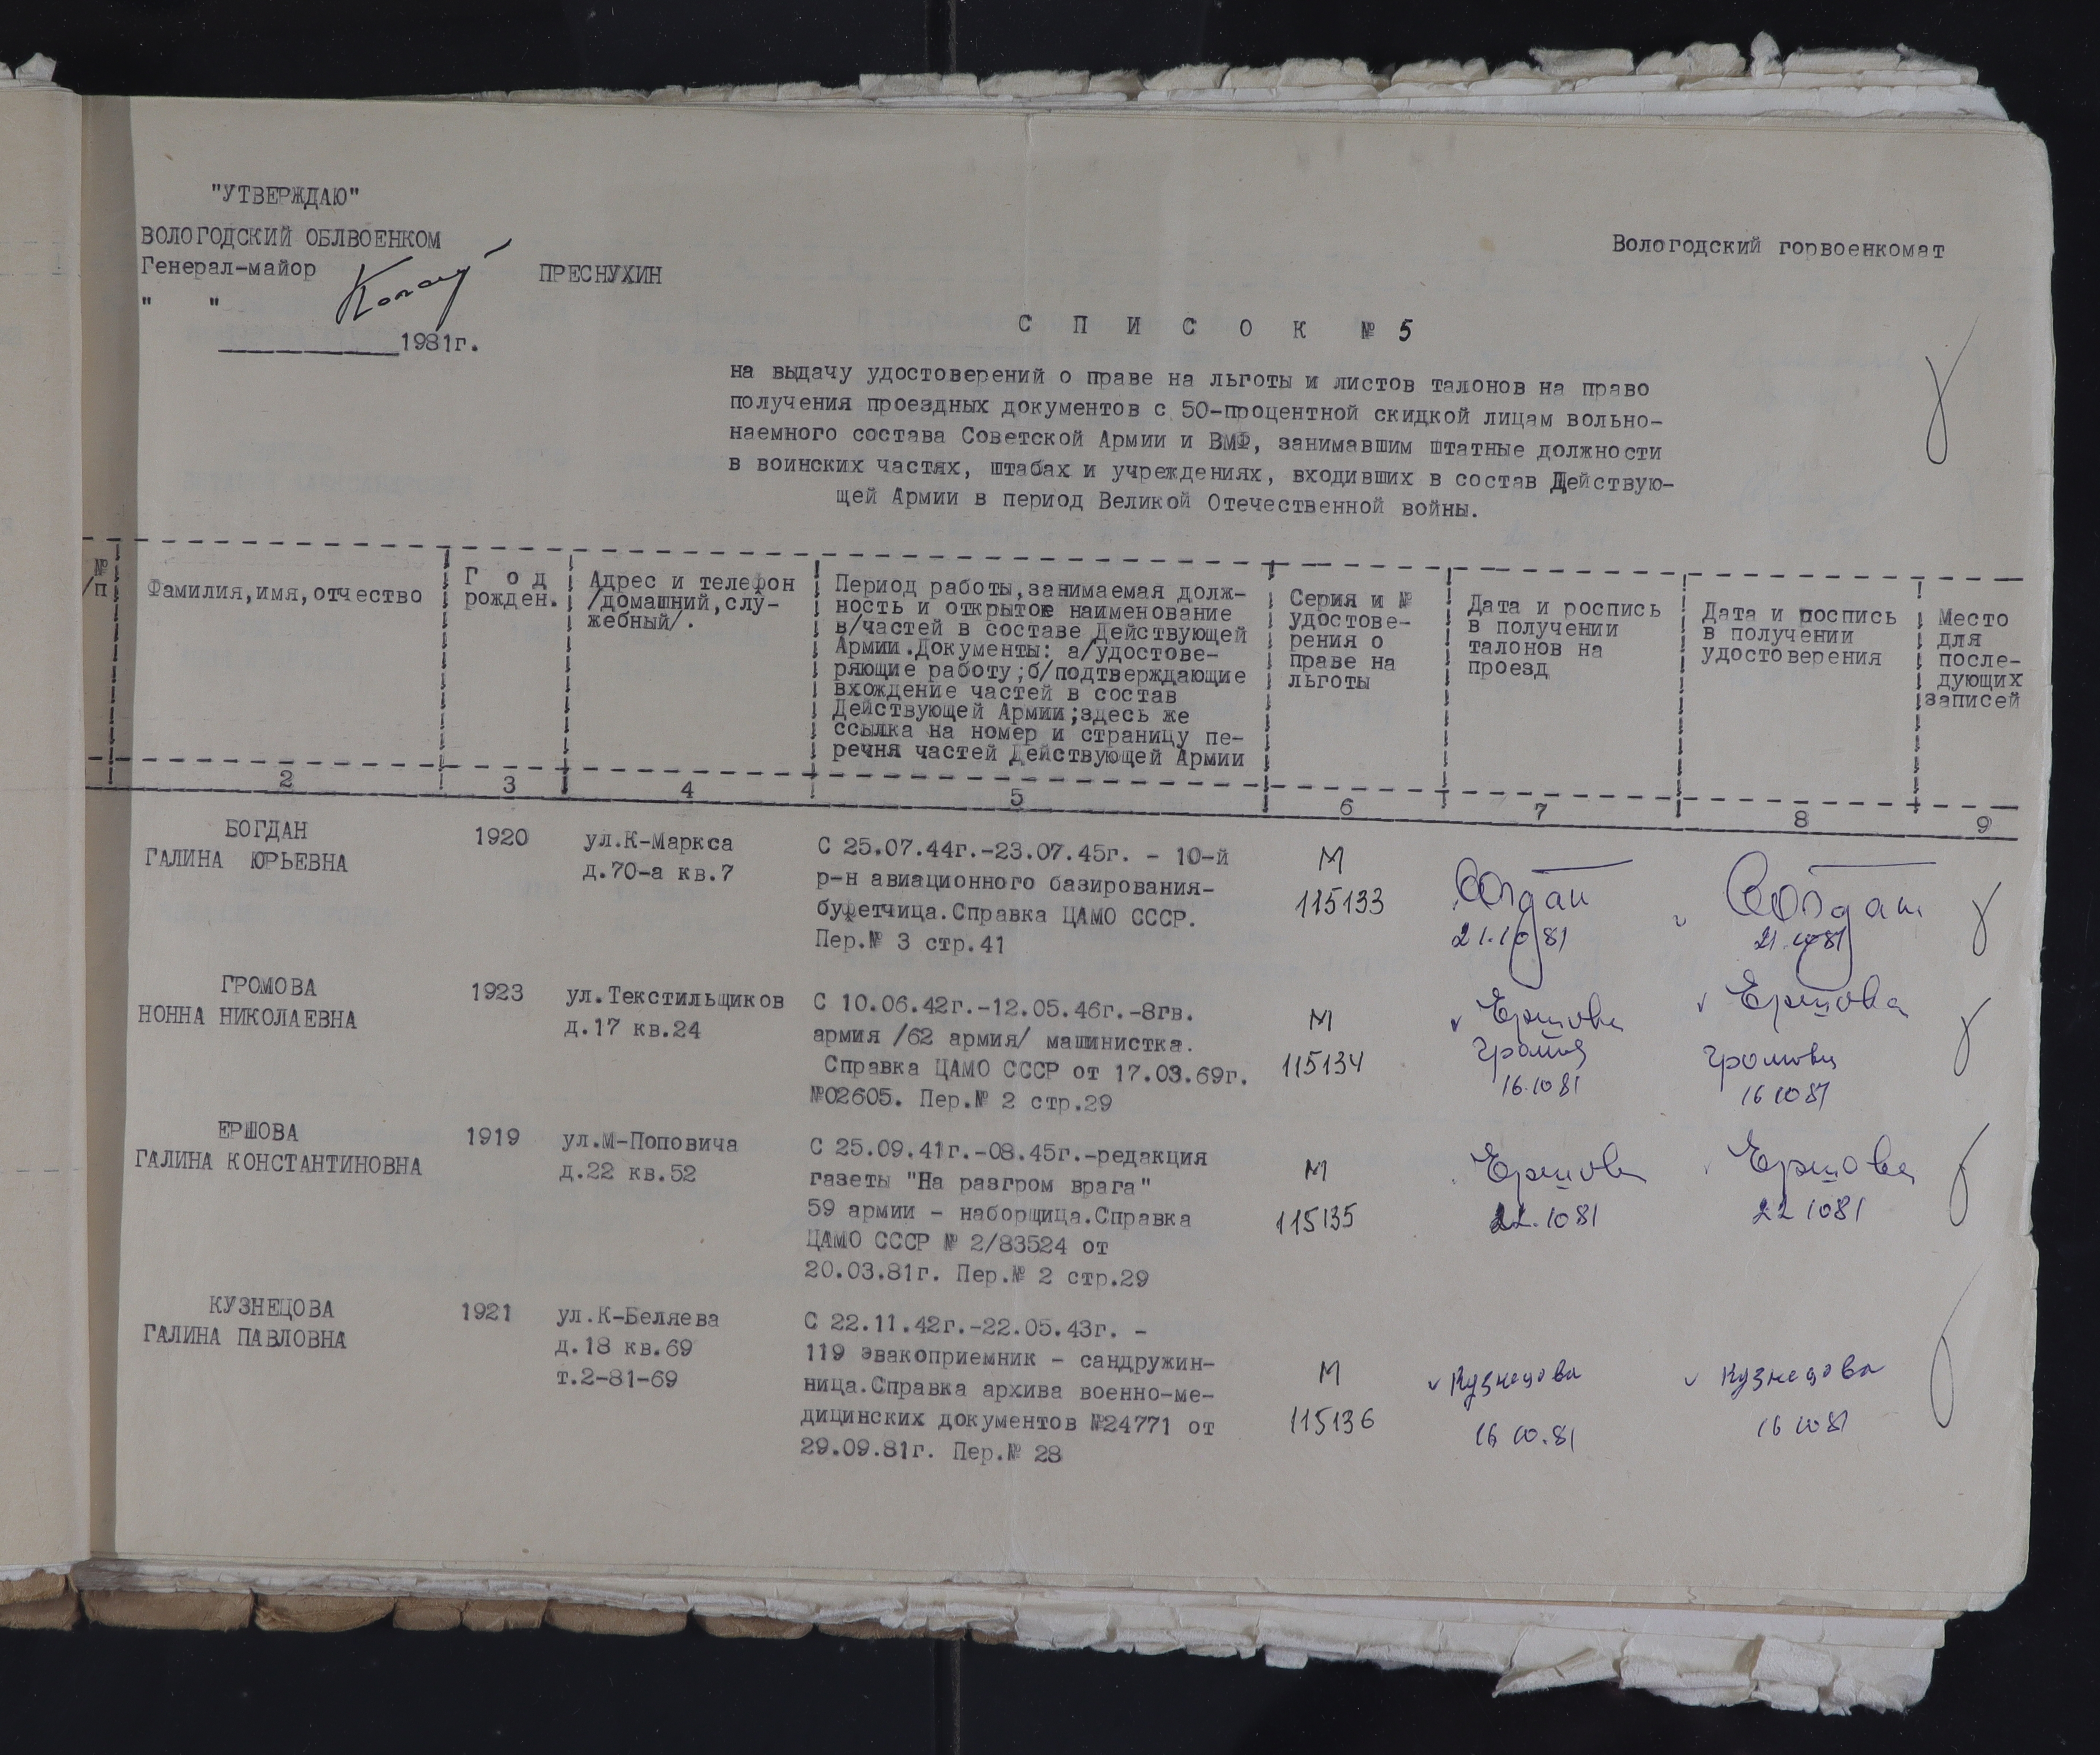 "УТВЕРЖДАЮ"
ВОЛОГОДСКИЙ ОБЛВОЕНКОМ
Генерал-майор ПРЕСНУХИН
" "
1981г.
Вологодский горвоенкомат
С П И С О К № 5
на выдачу удостоверений о праве на льготы и листов талонов на право
получения проездных документов с 50-процентной скидкой лицам вольно-
наемного состава Советской Армии и ВМФ, занимавшим штатные должности
в воинских частях, штабах и учреждениях, входивших в состав Действую-
щей Армии в период Великой Отечественной войны.
№
/п
Фамилия,имя,отчество
Г о д
рожден.
Адрес и телефон
/домашний,слу-
жебный/.
Период работы,занимаемая долж-
ность и открытое наименование
в/частей в составе Действующей
Армии.Документы: а/удостове-
ряющие работу;б/подтверждающие
вхождение частей в состав
Действующей Армии;здесь же
ссылка на номер и страницу пе-
речня частей Действующей Армии
Серия и №
удостове-
рения о
праве на
льготы
Дата и роспись
в получении
талонов на
проезд
Дата и роспись
в получении
удостоверения
Место
для
после-
дующих
записей
2 3 4 5 6 7 8 9
БОГДАН
ГАЛИНА ЮРЬЕВНА
1920
ул.К-Маркса
д.70-а кв.7
С 25.07.44г.-23.07.45г. - 10-й
р-н авиационного базирования-
буфетчица.Справка ЦАМО СССР.
Пер.№ 3 стр.41
М
115133
Богдан
21.10 81
Богдан
21.10 81
ГРОМОВА
НОННА НИКОЛАЕВНА
1923
ул.Текстильщиков
д.17 кв.24
С 10.06.42г.-12.05.46г.-8гв.
армия /62 армия/ машинистка.
Справка ЦАМО СССР от 17.03.69г.
№02605. Пер.№ 2 стр.29
М
115134
Ершова
Громов
16.10 81
Ершова
Громова
16 10 81
ЕРШОВА
ГАЛИНА КОНСТАНТИНОВНА
1919
ул.М-Поповича
д.22 кв.52
С 25.09.41г.-08.45г.-редакция
газеты "На разгром врага"
59 армии - наборщица.Справка
ЦАМО СССР № 2/83524 от
20.03.81г. Пер.№ 2 стр.29
М
115135
Ершова
22.10 81
Ершова
22 10 81
КУЗНЕЦОВА
ГАЛИНА ПАВЛОВНА
1921
ул.К-Беляева
д.18 кв.69
т.2-81-69
С 22.11.42г.-22.05.43г. -
119 эвакоприемник - сандружин-
ница.Справка архива военно-ме-
дицинских документов №24771 от
29.09.81г. Пер.№ 28
М
115136
Кузнецова
16 10.81
Кузнецова
16 10 81